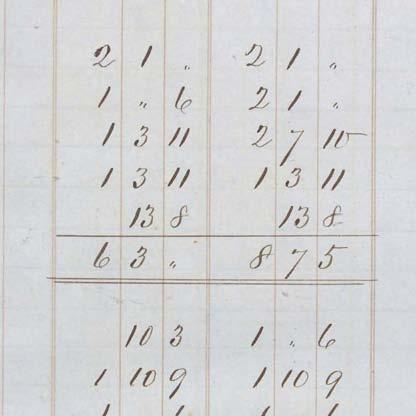 2 1 " 2 1 "
1 " 6 2 1 "
1 3 11 2 7 10
1 3 11 1 3 11
13 8 13 8
6 3 " 8 7 5
10 3 1 " 6
1 10 9 1 10 9